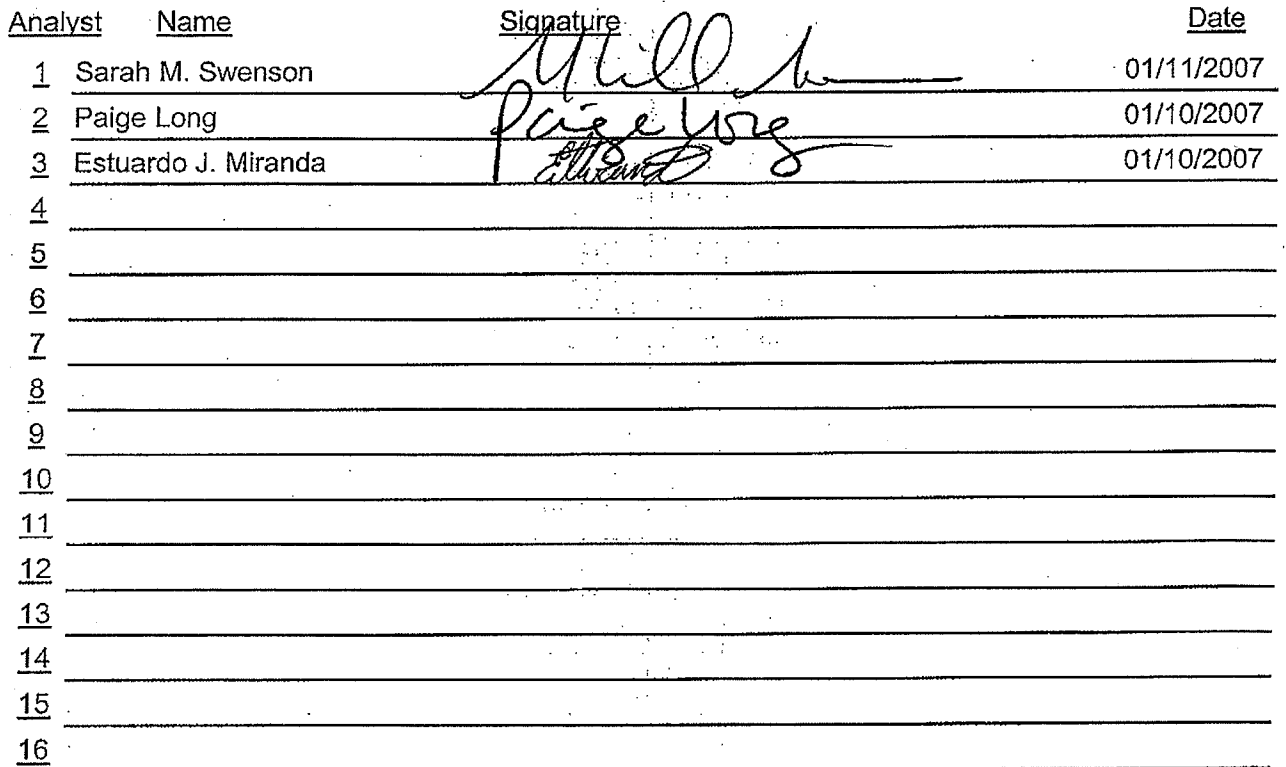 Analyst Name Signature Date
1 Sarah M. Swenson 01/11/2007
2 Paige Long Paige Long 01/10/2007
3 Estuardo J. Miranda 01/10/2007
4
5
6
7
8
9
10
11
12
13
14
15
16